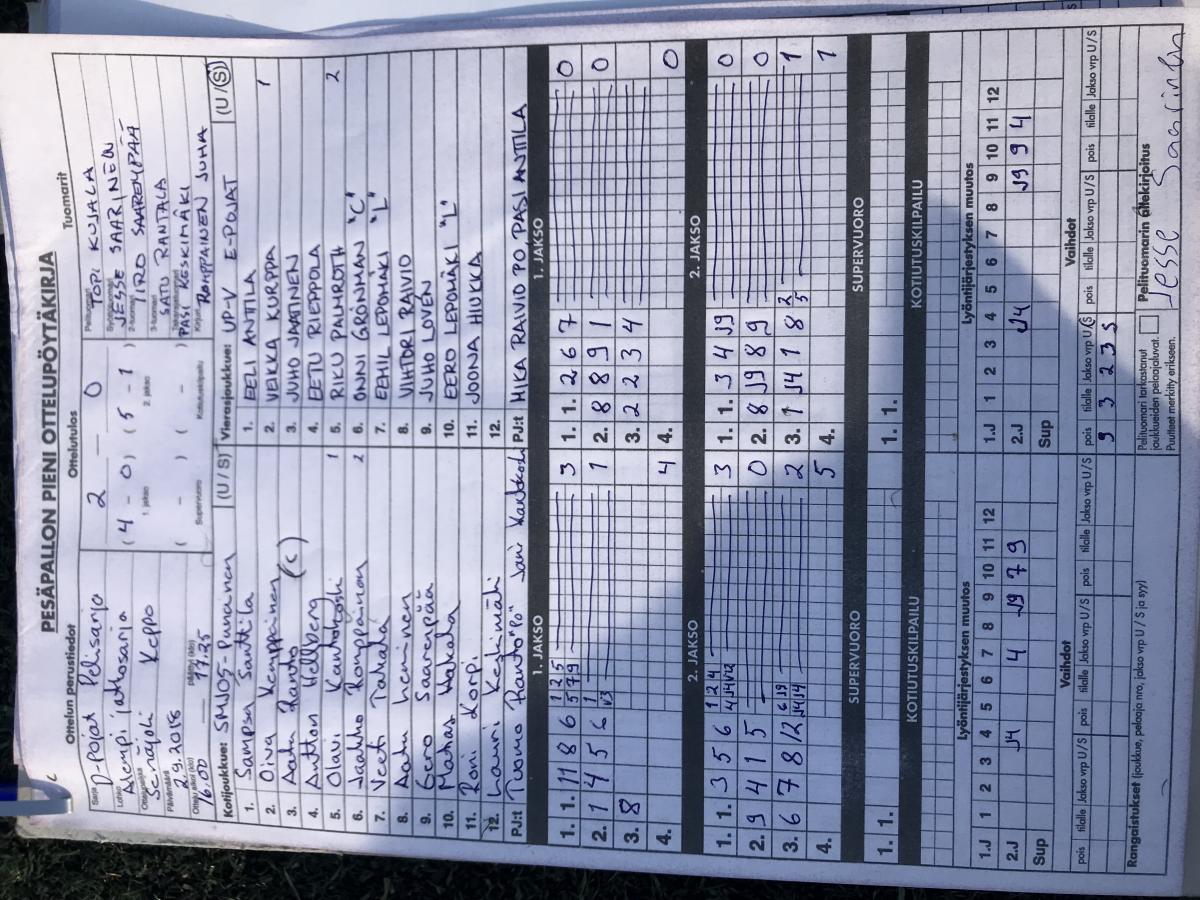 PESÄPALLON PIENI OTTELUPÖYTÄKIRJA
Ottelun perustiedot
Ottelutulos
Tuomarit
Sarja D-pojat Pelisarja
Lohko Alempi jatkosarja
Ottelupaikka Seinäjoki Keppo
Päivämäärä 2.9.2018
Ottelu alkoi (klo) 16.00 päättyi (klo) 17.25
2 — 0
( 4 - 0 ) ( 5 - 1 )
1. jakso 2. jakso
( - ) ( - )
Supervuoro Kotiutuskilpailu
Pelituomari TOPI KUJALA
Syöttötuomari JESSE SAARINEN
2-tuomari IIRO SAARENPÄÄ
3-tuomari SATU RANTALA
Takatuomari PASI KESKIMÄKI
Kirjuri ROMPPAINEN JUHA
Kotijoukkue: SMJOS-Punainen (U / S)
1. Sampsa Santtila
2. Oiva Kemppainen
3. Aatu Rauto (C)
4. Antton Hellberg
5. Olavi Kautkoski 1
6. Jaakko Romppainen 2
7. Veeti Takala
8. Aatu Leminen
9. Eero Saarenpää
10. Matias Hakala
11. Roni Korpi
12. Lauri Keskimäki
PJ:t Tuomo Rauto "PO" Jani Kautkoski
Vierasjoukkue: UP-V E-POJAT (U / S)
1. EELI ANTTILA
2. VEIKKA KURPPA 1
3. JUHO JAATINEN
4. EETU RIEPPOLA
5. RIKU PALMROTH 2
6. ONNI GRÖNMAN "C"
7. EEMIL LEPOMÄKI "L"
8. VIHTORI RAIVIO
9. JUHO LOVÉN
10. EERO LEPOMÄKI "L"
11. JOONA HIUKKA
12.
PJ:t MIKA RAIVIO PO PASI ANTTILA
1. JAKSO
1. 1. 11 8 6 1 2 5 5 7 9 3
2. 1 4 5 6 1 1
3. 8
4. 4
1. JAKSO
1. 1. 2 6 7 0
2. 8 8 9 1 0
3. 2 2 3 4
4. 0
2. JAKSO
1. 1. 3 5 6 1 2 4 3
2. 9 4 1 5 0
3. 6 7 8 12 2
4. 5
2. JAKSO
1. 1. 3 4 J9 0
2. 8 J9 8 9 0
3. 1 J4 1 8 2 5 1
4. 1
SUPERVUORO
1. 1.
SUPERVUORO
1. 1.
KOTIUTUSKILPAILU
KOTIUTUSKILPAILU
Lyöntijärjestyksen muutos
1.J 1 2 3 4 5 6 7 8 9 10 11 12
2.J J4 4 J9 7 9
Sup
Lyöntijärjestyksen muutos
1.J 1 2 3 4 5 6 7 8 9 10 11 12
2.J J4 J9 9 4
Sup
Vaihdot
pois tilalle Jakso vrp U/S pois tilalle Jakso vrp U/S pois tilalle Jakso vrp U/S
Vaihdot
pois tilalle Jakso vrp U/S pois tilalle Jakso vrp U/S pois tilalle Jakso vrp U/S
9 3 2 3 S
Rangaistukset (joukkue, pelaaja nro, jakso vrp U/S ja syy)
Pelituomari tarkastanut
joukkueiden pelaajaluvat.
Puutteet merkitty erikseen.
Pelituomarin allekirjoitus
Jesse Saarinen